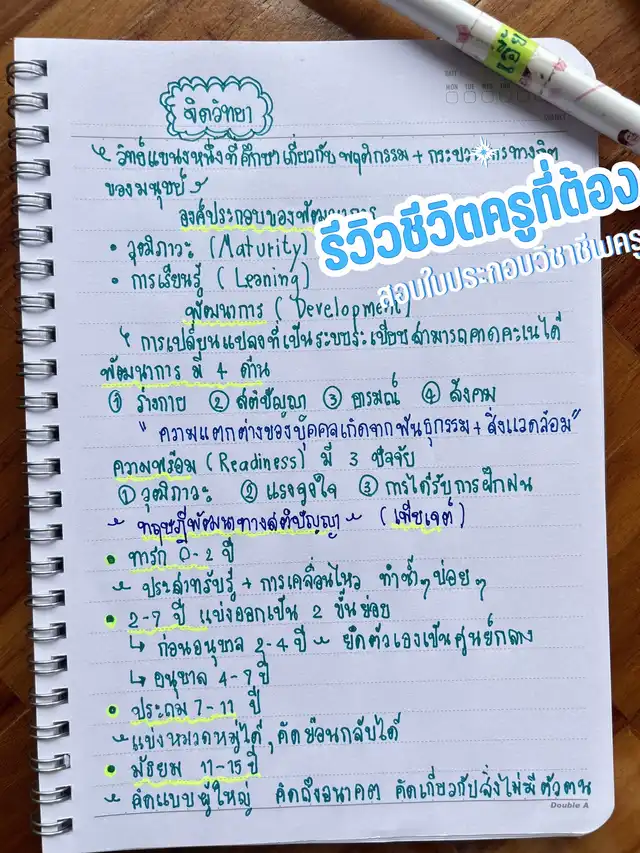 จิตวิทยา
วิทย์แขนงหนึ่งที่ศึกษาเกี่ยวกับพฤติกรรม + กระบวนการทางจิต
ของมนุษย์
องค์ประกอบของพัฒนาการ
รีวิวชีวิตครูที่ต้อง
สอบใบประกอบวิชาชีพครู
• วุฒิภาวะ (Maturity)
• การเรียนรู้ (Leaning)
พัฒนาการ (Development)
การเปลี่ยนแปลงที่เป็นระบบระเบียบสามารถคาดคะเนได้
พัฒนาการ มี 4 ด้าน
① ร่างกาย ② สติปัญญา ③ อารมณ์ ④ สังคม
"ความแตกต่างของบุคคลเกิดจากพันธุกรรม + สิ่งแวดล้อม"
ความพร้อม (Readiness) มี 3 ปัจจัย
① วุฒิภาวะ ② แรงจูงใจ ③ การได้รับการฝึกฝน
ทฤษฎีพัฒนาทางสติปัญญา (เพียเจต์)
• ทารก 0-2 ปี
ประสาทรับรู้ + การเคลื่อนไหว ทำซ้ำๆ บ่อยๆ
• 2-7 ปี แบ่งออกเป็น 2 ขั้นย่อย
↳ ก่อนอนุบาล 2-4 ปี ยึดตัวเองเป็นศูนย์กลาง
↳ อนุบาล 4-7 ปี
• ประถม 7-11 ปี
แบ่งหมวดหมู่ได้, คิดย้อนกลับได้
• มัธยม 11-15 ปี
คิดแบบผู้ใหญ่ คิดถึงอนาคต คิดเกี่ยวกับสิ่งไม่มีตัวตน
Double A